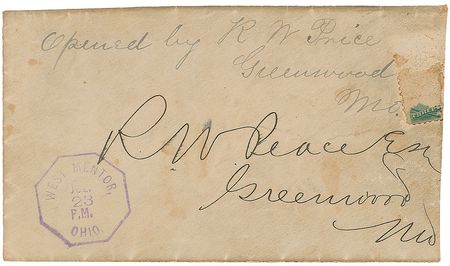 Opened by R W Price
Greenwood
Mo.
R. W. Peace Esq
Greenwood
Mo
WEST MENTOR,
JUL.
23
P.M.
OHIO.